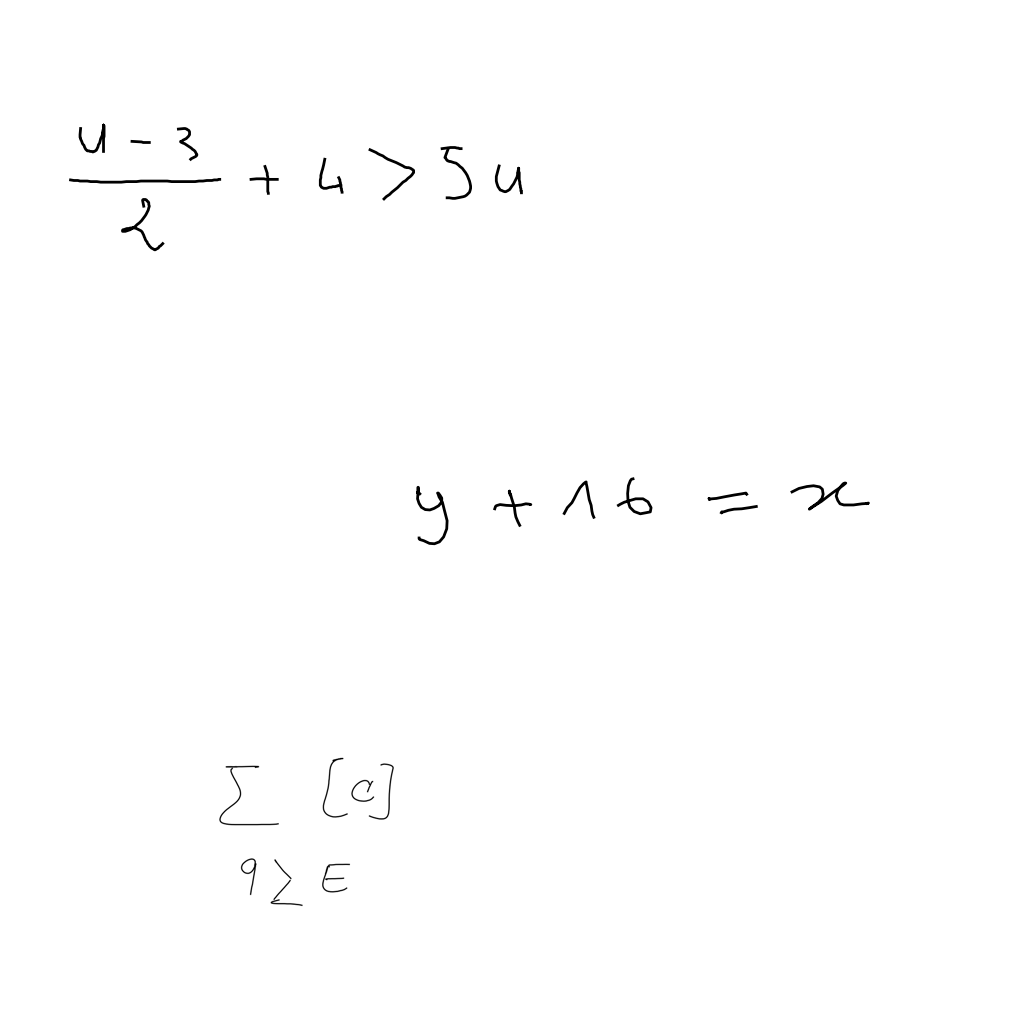 \frac{u-3}{2}+4>5u
y+16=x
\sum_{q\geq E}[a]